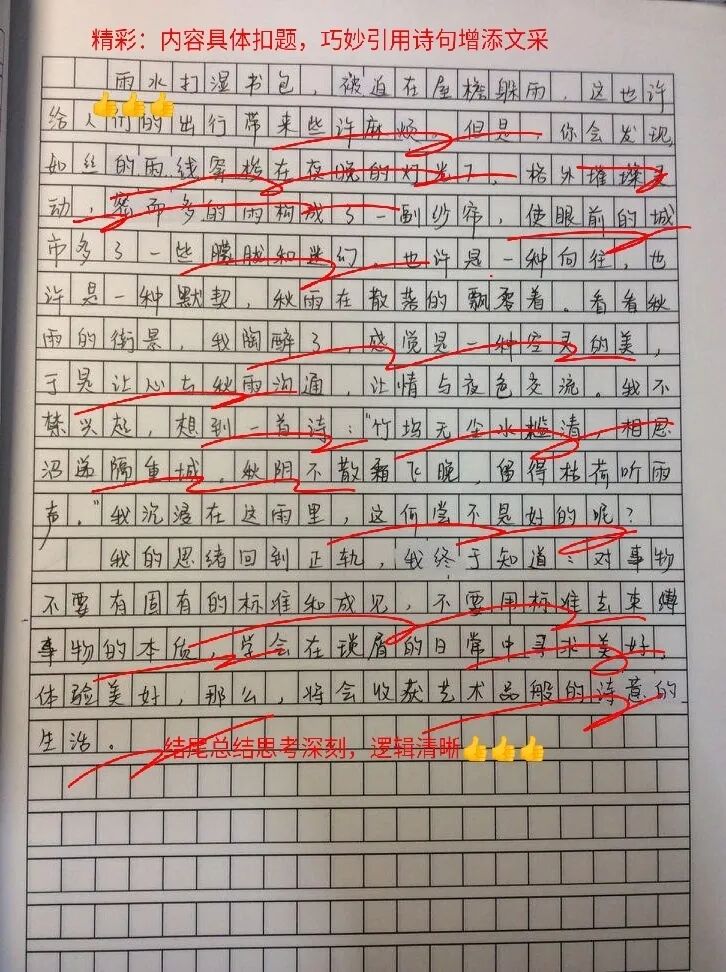 精彩：内容具体扣题，巧妙引用诗句增添文采
雨水打湿书包，被迫在屋檐躲雨，这也许
给人们的出行带来些许麻烦。但是，你会发现，
如丝的雨线穿梭在夜晚的灯光下，格外璀璨灵
动，密而多的雨构成了一副纱帘，使眼前的城
市多了一些朦胧和迷幻，也许是一种向往，也
许是一种默契，秋雨在散落的飘零着。看看秋
雨的街景，我陶醉了，感觉是一种空灵的美，
于是让心与秋雨沟通，让情与夜色交流。我不
禁兴起，想到一首诗：“竹坞无尘水槛清，相思
迢递隔重城。秋阴不散霜飞晚，留得枯荷听雨
声。”我沉浸在这雨里，这何尝不是好的呢？
我的思绪回到正轨，我终于知道：对事物
不要有固有的标准和成见，不要用标准去束缚
事物的本质，学会在琐屑的日常中寻求美好，
体验美好，那么，将会收获艺术品般的诗意的
生活。
结尾总结思考深刻，逻辑清晰